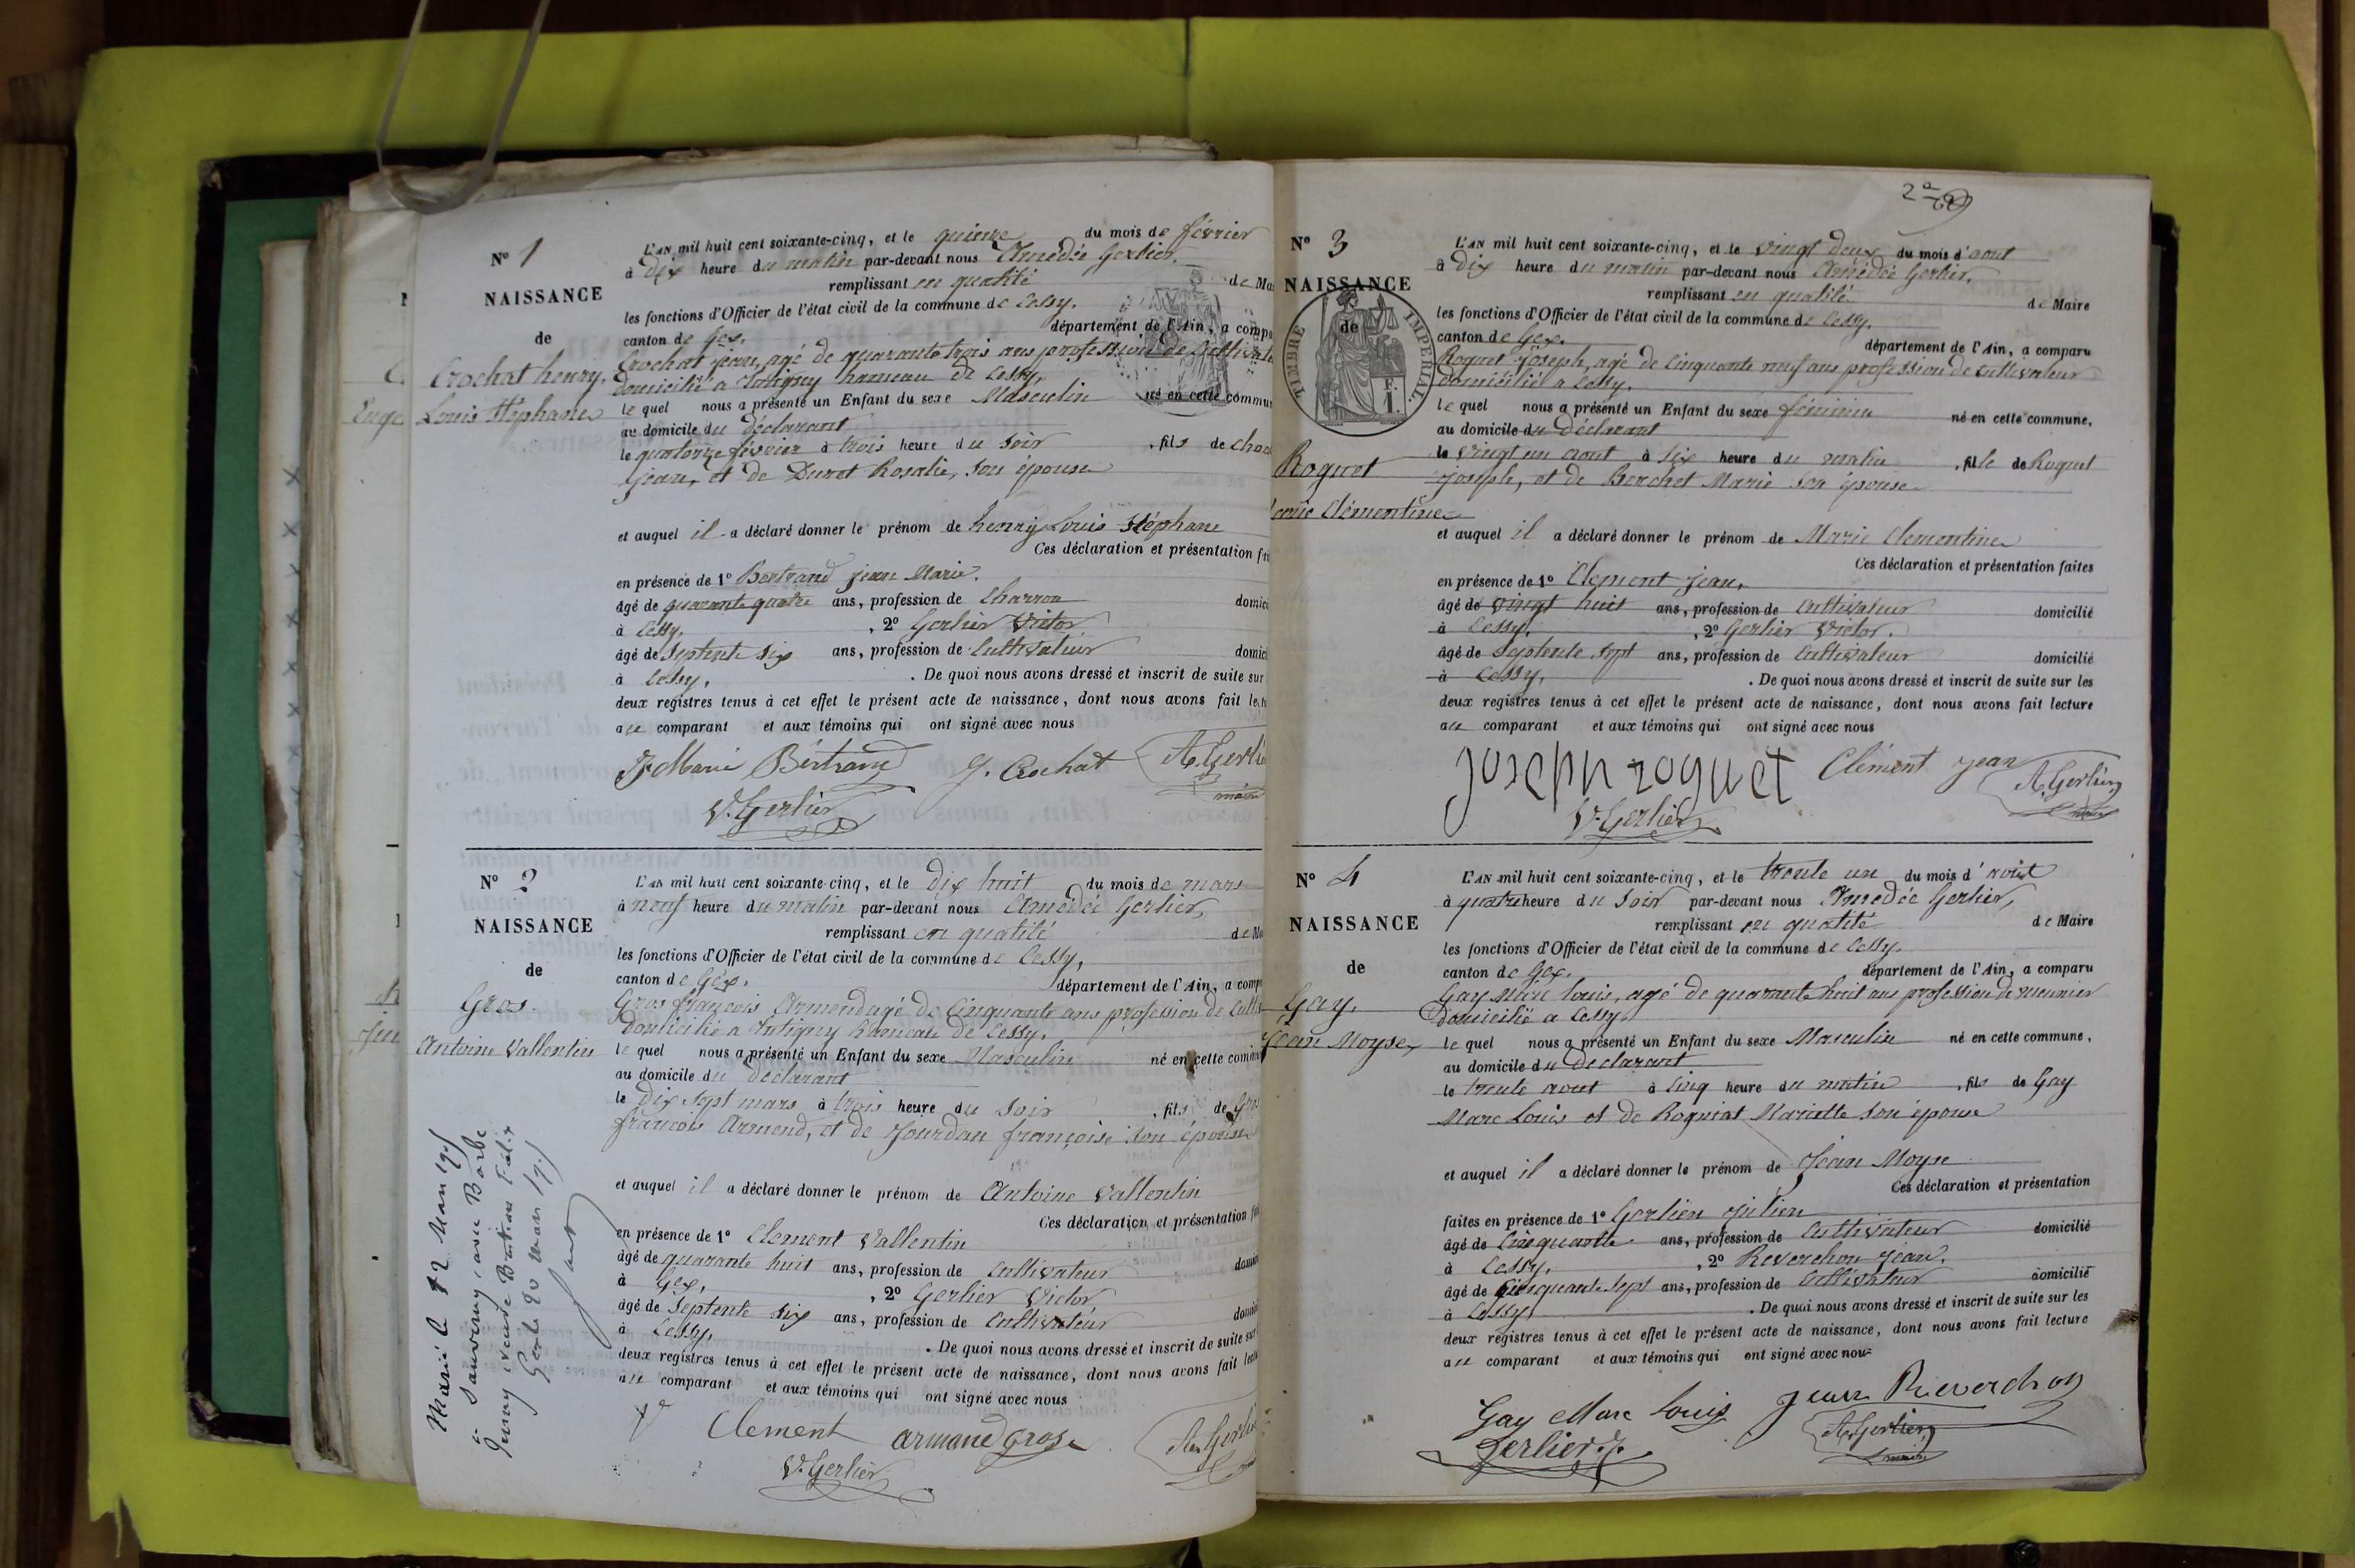 Nº 1
NAISSANCE
de
Crochat henry,
Louis Stéphane
L'AN mil huit cent soixante-cinq, et le quinze du mois de février
à Dix heure du matin par-devant nous Amédée Gerlier,
remplissant en qualité de Ma
les fonctions d'Officier de l'état civil de la commune de Cessy,
canton de Gex, département de l'Ain, a compa
Crochat jean, agé de quarante trois ans profession de Cultivate
domicilié a Tutigny hameau de Cessy,
le quel nous a présenté un Enfant du sexe Masculin né en cette commun
au domicile du déclarant
le quatorze février à trois heure du soir , fils de
jean, et de Duret Rosalie, son épouse
et auquel il a déclaré donner le prénom de henry Louis Stéphane
Ces déclaration et présentation fai
en présence de 1º Bertrand jean Marie.
âgé de quarante quatre ans, profession de Charron domici
à Cessy, , 2º Gerlier Victor
âgé de septente six ans, profession de Cultivateur domici
à Cessy, . De quoi nous avons dressé et inscrit de suite sur
deux registres tenus à cet effet le présent acte de naissance, dont nous avons fait lectu
au comparant et aux témoins qui ont signé avec nous
J Marie Bertrand J. Crochat A. Gerlie
maire
V. Gerlier
Nº 2
NAISSANCE
de
Gros
Antoine Vallentin
L'AN mil huit cent soixante-cinq, et le Dix huit du mois de mars
à neuf heure du matin par-devant nous Amédée Gerlier,
remplissant en qualité de Ma
les fonctions d'Officier de l'état civil de la commune de Cessy,
canton de Gex, département de l'Ain, a comp
Gros françois Armend agé de Cinquante ans profession de Culti
Domicilié a Tutigny hameau de Cessy,
le quel nous a présenté un Enfant du sexe Masculin né en cette commu
au domicile du déclarant
le Dix sept mars à trois heure du soir , fils de Gros
françois Armend, et de Jourdan françoise son épouse
et auquel il a déclaré donner le prénom de Antoine Vallentin
Ces déclaration et présentation fai
en présence de 1º Clement Vallentin
âgé de quarante huit ans, profession de Cultivateur domici
à Gex, , 2º Gerlier Victor
âgé de septente six ans, profession de Cultivateur domici
à Cessy, . De quoi nous avons dressé et inscrit de suite sur
deux registres tenus à cet effet le présent acte de naissance, dont nous avons fait lectu
au comparant et aux témoins qui ont signé avec nous
Clement armand gros
A. Gerlie
V. Gerlier
Marié le 12 Mars
à Sauverny, avec Barbe
Jenny veuve Felix
le 20 Mars
Nº 3
NAISSANCE
de
TIMBRE IMPERIAL
Roquet
Clémentine
L'AN mil huit cent soixante-cinq, et le vingt deux du mois d'aout
à Dix heure du matin par-devant nous Amédée Gerlier,
remplissant en qualité de Maire
les fonctions d'Officier de l'état civil de la commune de Cessy,
canton de Gex. département de l'Ain, a comparu
Roquet Joseph, agé de Cinquante neuf ans profession de cultivateur
Domicilié a Cessy,
le quel nous a présenté un Enfant du sexe féminin né en cette commune,
au domicile du Déclarant
le vingt un aout à six heure du matin , fille de Roquet
joseph, et de Berchet Marie son épouse
et auquel il a déclaré donner le prénom de Marie Clementine
Ces déclaration et présentation faites
en présence de 1º Clement jean,
âgé de vingt huit ans, profession de Cultivateur domicilié
à Cessy, , 2º Gerlier Victor.
âgé de septente sept ans, profession de Cultivateur domicilié
à Cessy, . De quoi nous avons dressé et inscrit de suite sur les
deux registres tenus à cet effet le présent acte de naissance, dont nous avons fait lecture
au comparant et aux témoins qui ont signé avec nous
joseph roquet Clément jean A. Gerlier
V. Gerlier
Nº 4
NAISSANCE
de
Gay,
Jean Moyse,
L'AN mil huit cent soixante-cinq, et le trente un du mois d'aout
à quatre heure du soir par-devant nous Amedée Gerlier,
remplissant en qualité de Maire
les fonctions d'Officier de l'état civil de la commune de Cessy,
canton de Gex, département de l'Ain, a comparu
Gay Marc louis, agé de quarante huit ans profession de meunier
Domicilié a Cessy
le quel nous a présenté un Enfant du sexe Masculin né en cette commune,
au domicile du Declarant
le trente aout à Cinq heure du matin , fils de Gay
Marc Louis et de Roguiat Mariette son épouse
et auquel il a déclaré donner le prénom de Jean Moyse
Ces déclaration et présentation
faites en présence de 1º Gerlier julien
âgé de Cinquante ans, profession de Cultivateur domicilié
à Cessy, , 2º Reverchon jean,
âgé de Cinquante sept ans, profession de Cultivateur domicilié
à Cessy, . De quoi nous avons dressé et inscrit de suite sur les
deux registres tenus à cet effet le présent acte de naissance, dont nous avons fait lecture
au comparant et aux témoins qui ont signé avec nous
Gay Marc Louis jean Reverchon
Gerlier J. A. Gerlier